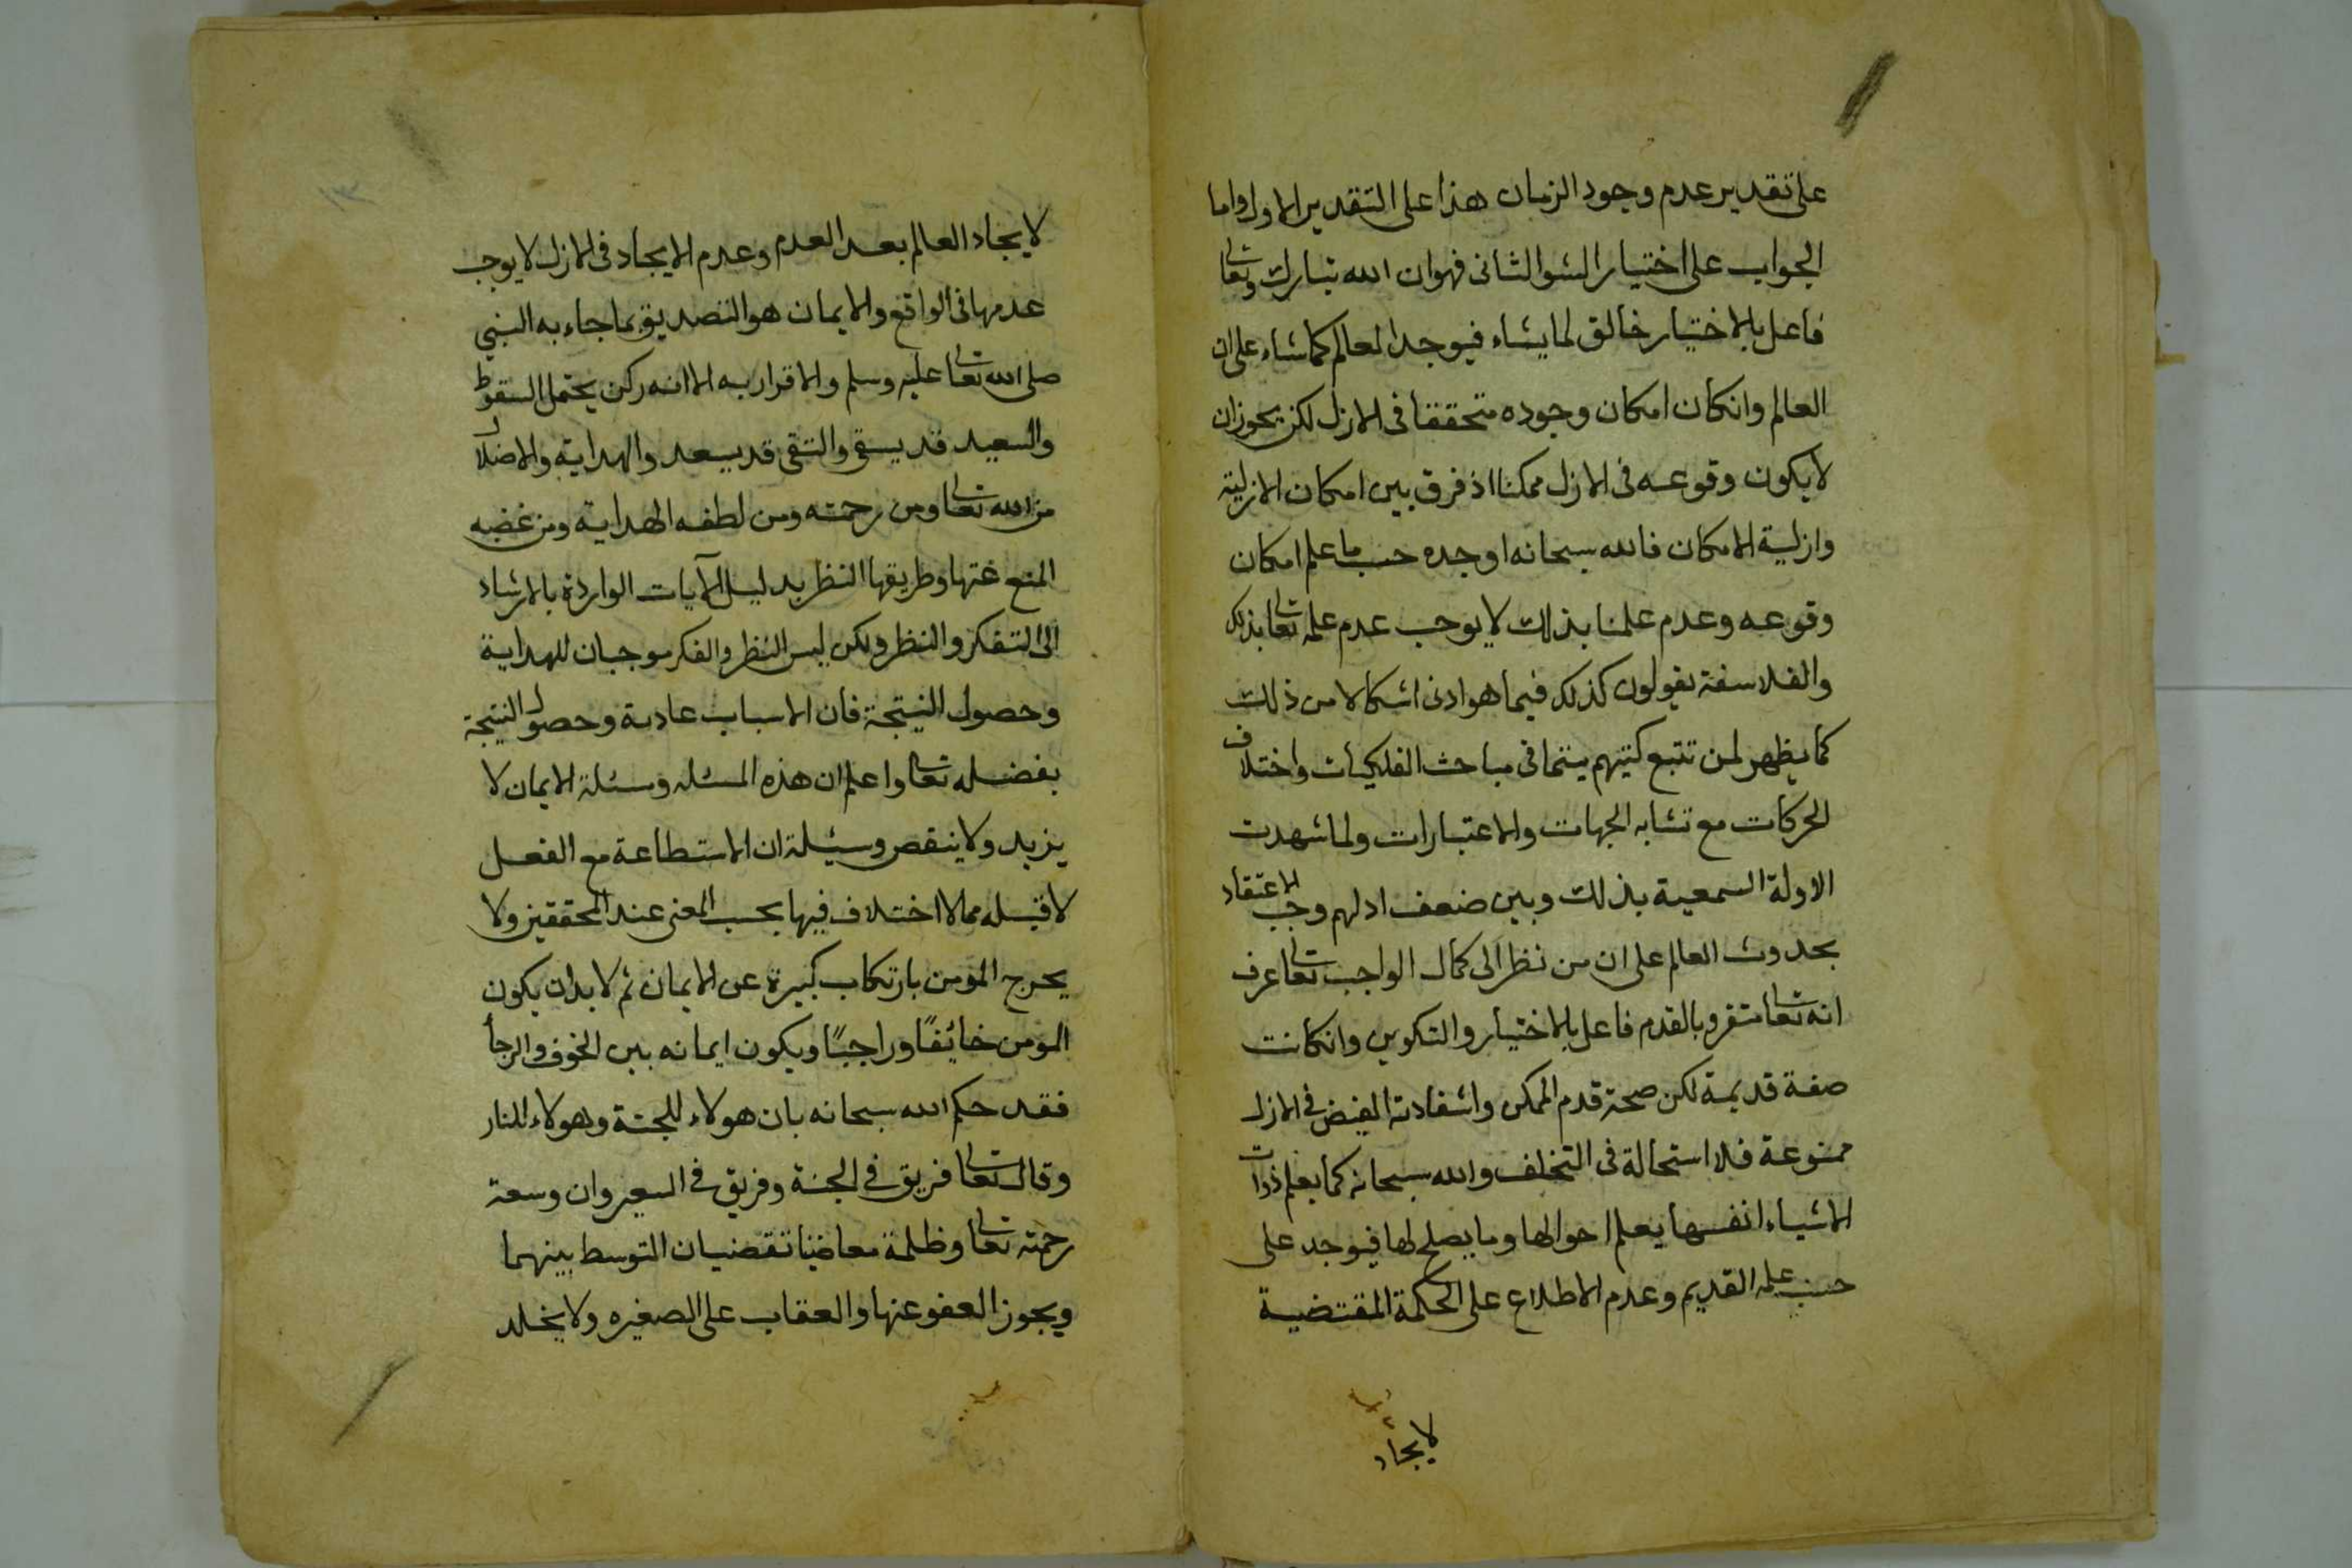 على تقدير عدم وجود الزمان هذا على التقدير الاول واما
الجواب على اختيار الشق الثانى فهو ان الله تبارك وتعالى
فاعل بالاختيار خالق لما يشاء فيوجد العالم كما شاء على ان
العالم وانكان امكان وجوده متحققا فى الازل لكن يجوز ان
لا يكون وقوعه فى الازل ممكنا اذ فرق بين امكان الازلية
وازلية الامكان فالله سبحانه اوجده حسب ما علم امكان
وقوعه وعدم علمنا بذلك لا يوجب عدم علمه تعالى بذلك
والفلاسفة يقولون كذلك فيما هو ادنى اشكالا من ذلك
كما يظهر لمن تتبع كتبهم سيما فى مباحث الفلكيات واختلاف
الحركات مع تشابه الجهات والاعتبارات ولما شهدت
الادلة السمعية بذلك وبين ضعف ادلهم وجب الاعتقاد
بحدوث العالم على ان من نظر الى كمال الواجب تعالى عرف
انه تعالى متفرد بالقدم فاعل بالاختيار والتكوين وانكانت
صفة قديمة لكن صحة قدم الممكن واستفادته الفيض فى الازل
ممنوعة فلا استحالة فى التخلف والله سبحانه كما يعلم ذوات
الاشياء انفسها يعلم احوالها وما يصلح لها فيوجد على
حسب علمه القديم وعدم الاطلاع على الحكمة المقتضية
لايجاد
لايجاد العالم بعد العدم وعدم الايجاد فى الازل لا يوجب
عدمها فى الواقع والايمان هو التصديق بما جاء به النبي
صلى الله تعالى عليه وسلم والاقرار به الا انه ركن يحتمل السقوط
والسعيد قد يشقى والشقى قد يسعد والهداية والاضلال
من الله تعالى ومن رحمته ومن لطفه الهداية ومن غضبه
المنع عنها وطريقها النظر بدليل الآيات الواردة بالارشاد
الى التفكر والنظر ولكن ليس النظر والفكر موجبان للهداية
وحصول النتيجة فان الاسباب عادية وحصول النتيجة
بفضله تعالى واعلم ان هذه المسئله ومسئلة الايمان لا
يزيد ولا ينقص ومسئلة ان الاستطاعة مع الفعل
لا قبله مما لا اختلاف فيها بحسب المعنى عند المحققين ولا
يخرج المؤمن بارتكاب كبيرة عن الايمان ثم لا بد ان يكون
المؤمن خائفًا وراجيًا ويكون ايمانه بين الخوف والرجا
فقد حكم الله سبحانه بان هولاء للجنة وهولاء للنار
وقال تعالى فريق فى الجنة وفريق فى السعير وان وسعة
رحمته تعالى وظلمة معاصينا تقضيان التوسط بينهما
ويجوز العفو عنها والعقاب على الصغيره ولا يخلد